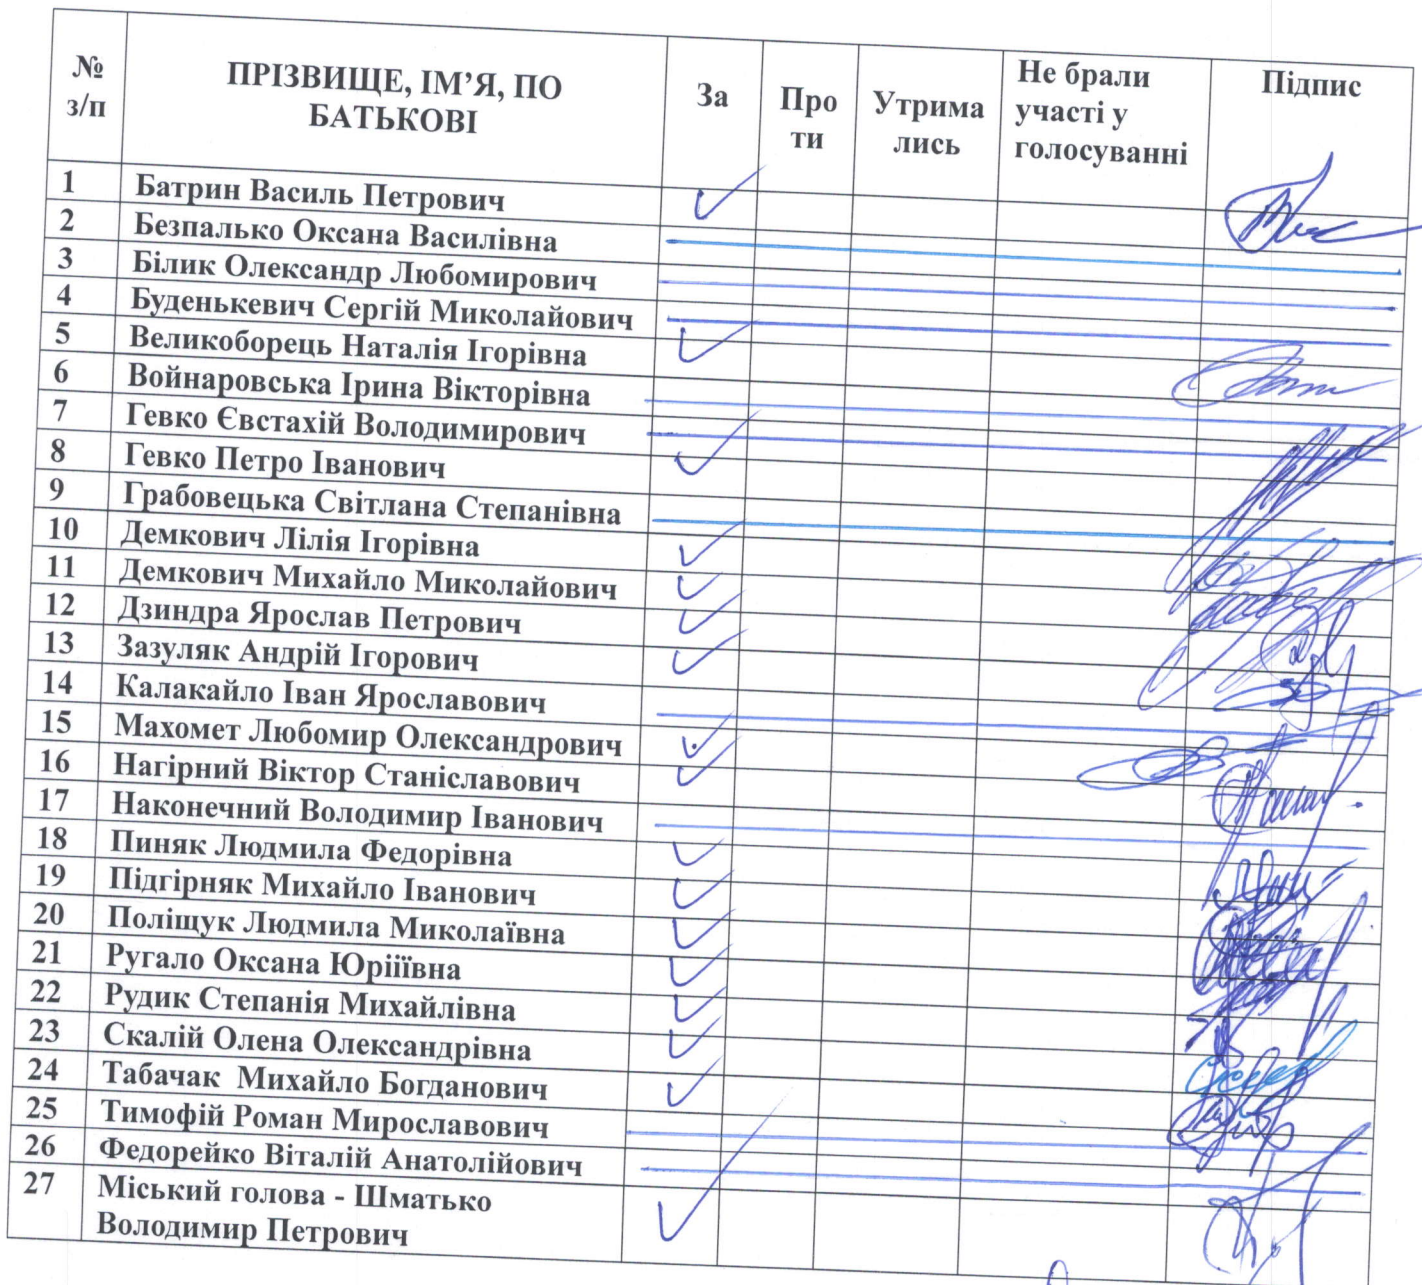 №
з/п
ПРІЗВИЩЕ, ІМ’Я, ПО
БАТЬКОВІ
За
Про
ти
Утрима
лись
Не брали
участі у
голосуванні
Підпис
1 Батрин Василь Петрович
2 Безпалько Оксана Василівна
3 Білик Олександр Любомирович
4 Буденькевич Сергій Миколайович
5 Великоборець Наталія Ігорівна
6 Войнаровська Ірина Вікторівна
7 Гевко Євстахій Володимирович
8 Гевко Петро Іванович
9 Грабовецька Світлана Степанівна
10 Демкович Лілія Ігорівна
11 Демкович Михайло Миколайович
12 Дзиндра Ярослав Петрович
13 Зазуляк Андрій Ігорович
14 Калакайло Іван Ярославович
15 Махомет Любомир Олександрович
16 Нагірний Віктор Станіславович
17 Наконечний Володимир Іванович
18 Пиняк Людмила Федорівна
19 Підгірняк Михайло Іванович
20 Поліщук Людмила Миколаївна
21 Ругало Оксана Юріїївна
22 Рудик Степанія Михайлівна
23 Скалій Олена Олександрівна
24 Табачак Михайло Богданович
25 Тимофій Роман Мирославович
26 Федорейко Віталій Анатолійович
27 Міський голова - Шматько
Володимир Петрович